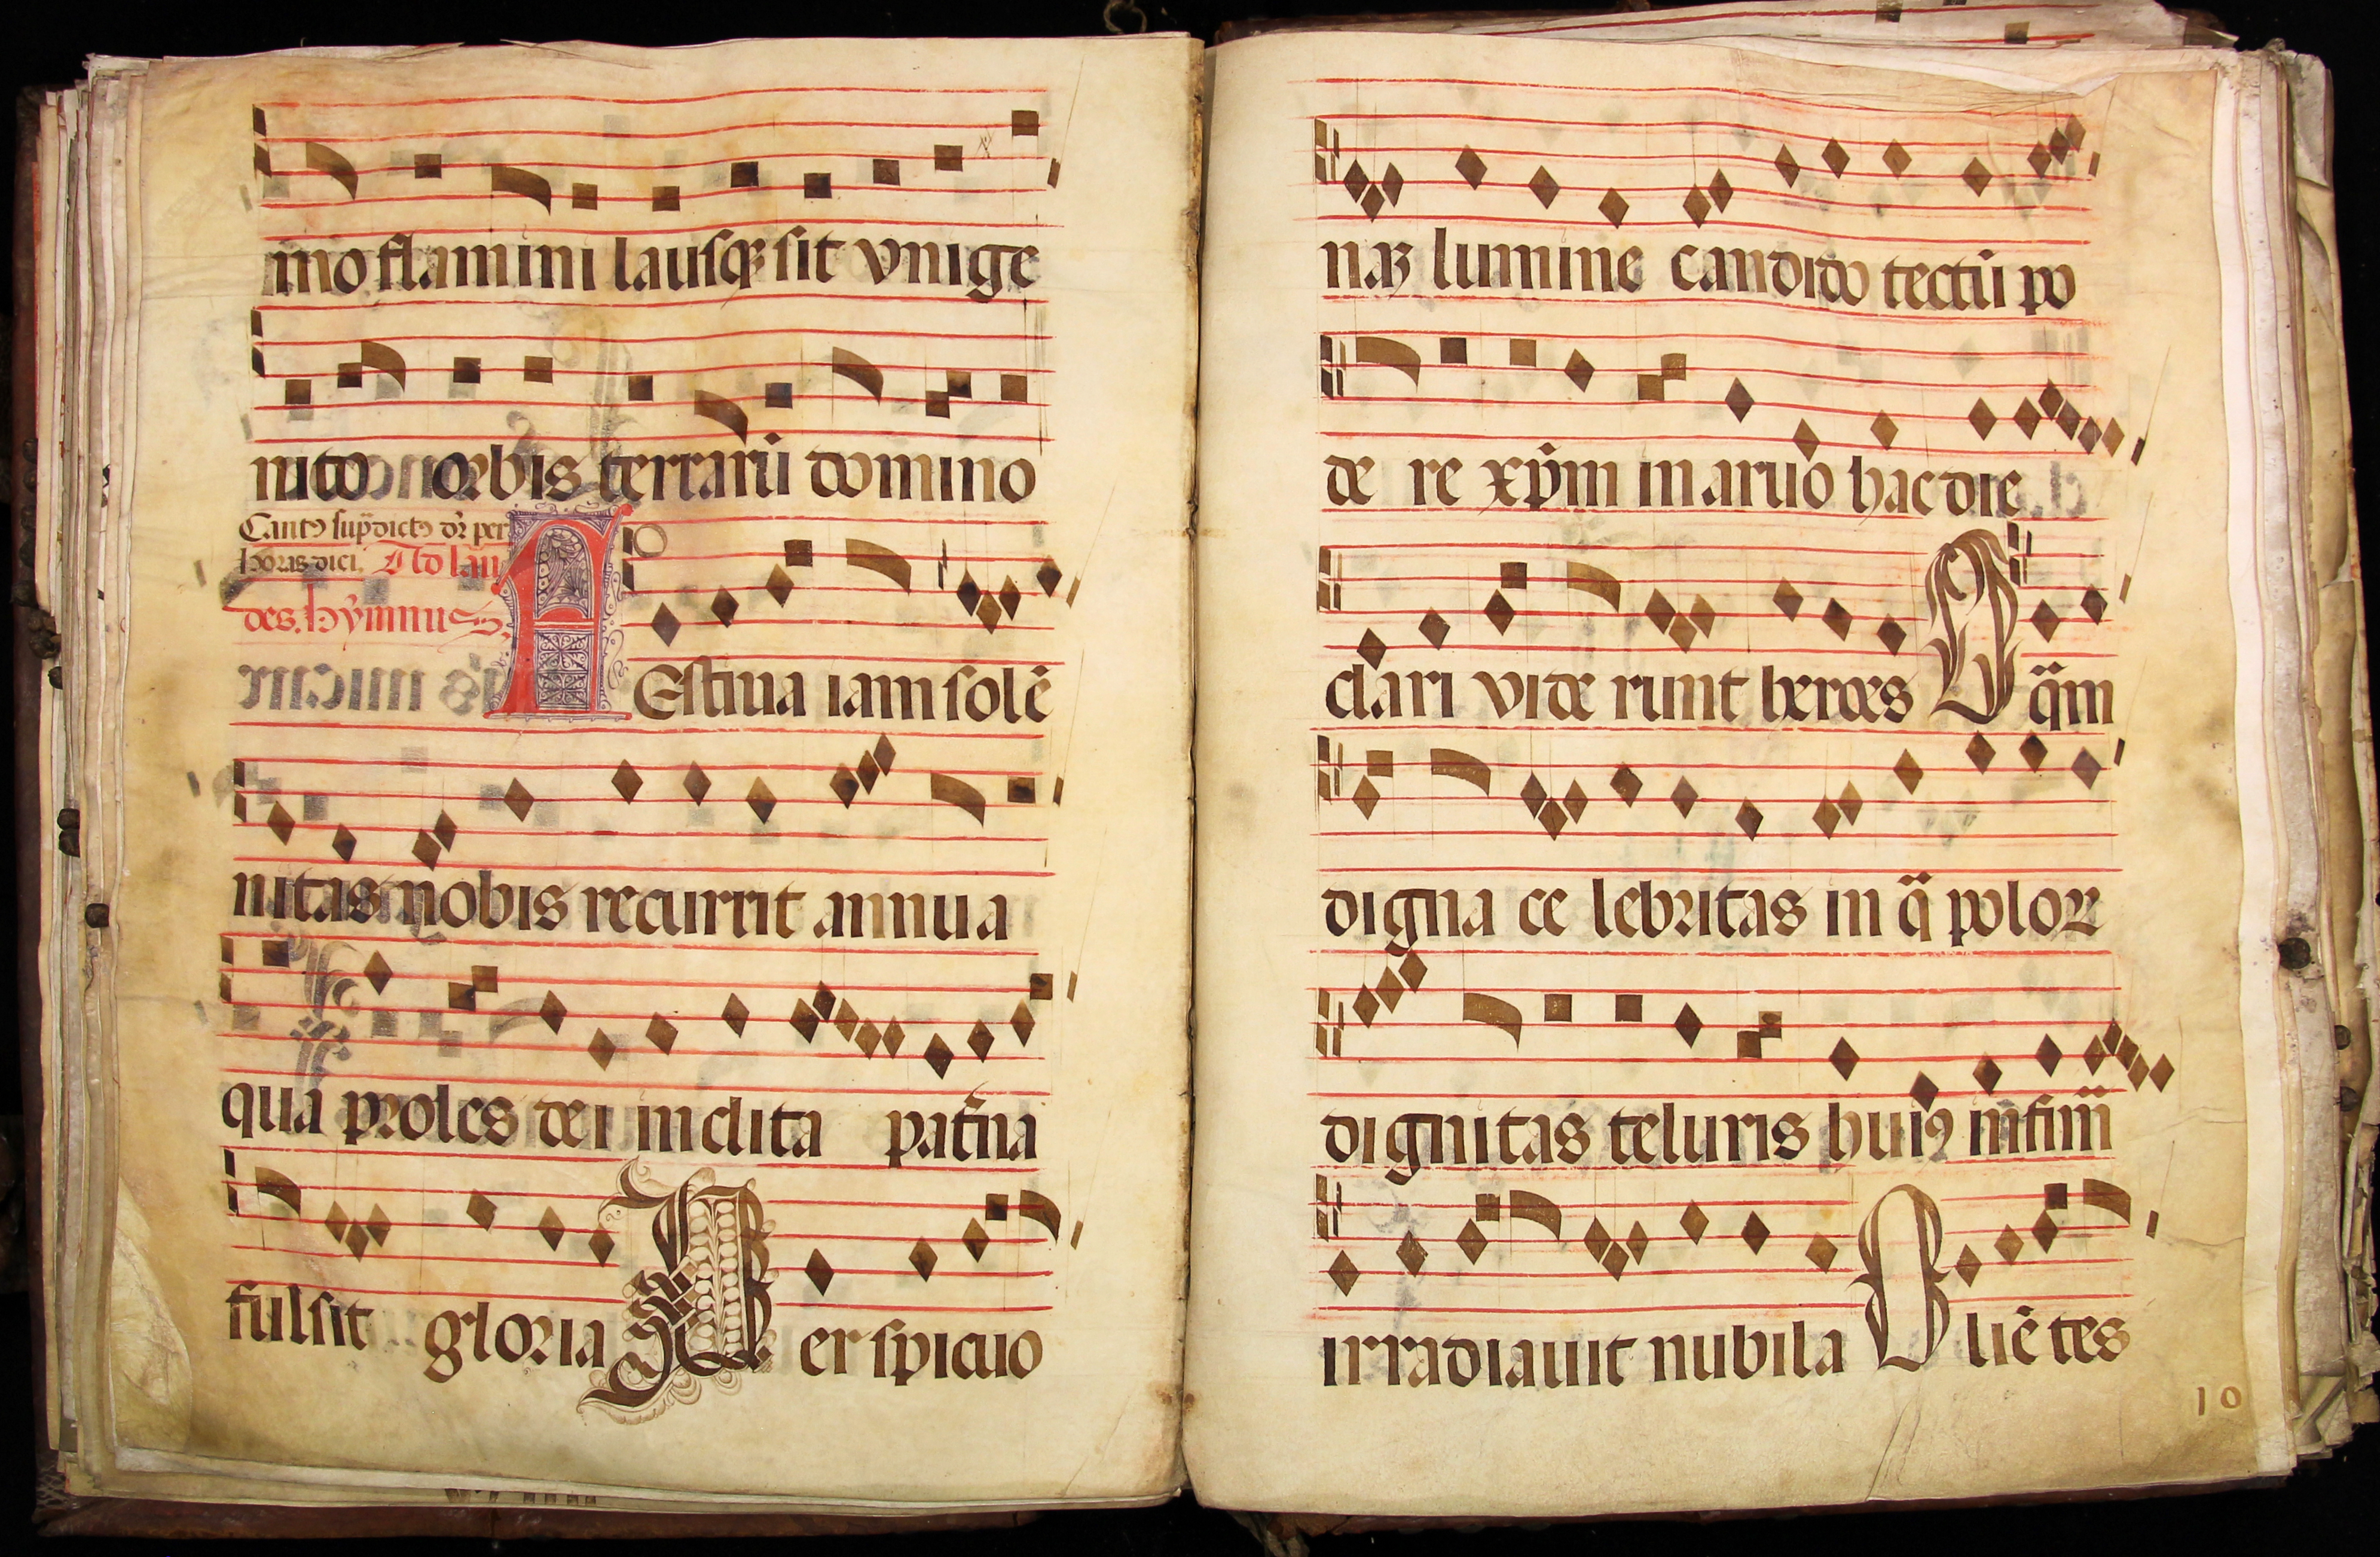 mo flamini lausqꝫ sit vnige
nito orbis terrarū domino
Cantꝰ sup̄dictꝰ dr̄ per
horas diei. Ad lau
des. hẏmnus.
AEstiua iam solē
nitas nobis recurrit annua
qua proles dei inclita pat̄na
fulsit gloria Perspicuo
naꝫ lumine candido tectū po
de re xp̄m in aruo hac die
clari viderunt heroes O q̄m
digna celebritas in q̄ poloꝝ
dignitas teluris huiꝰ infim̄
irradiauit nubila Oliē tes
10